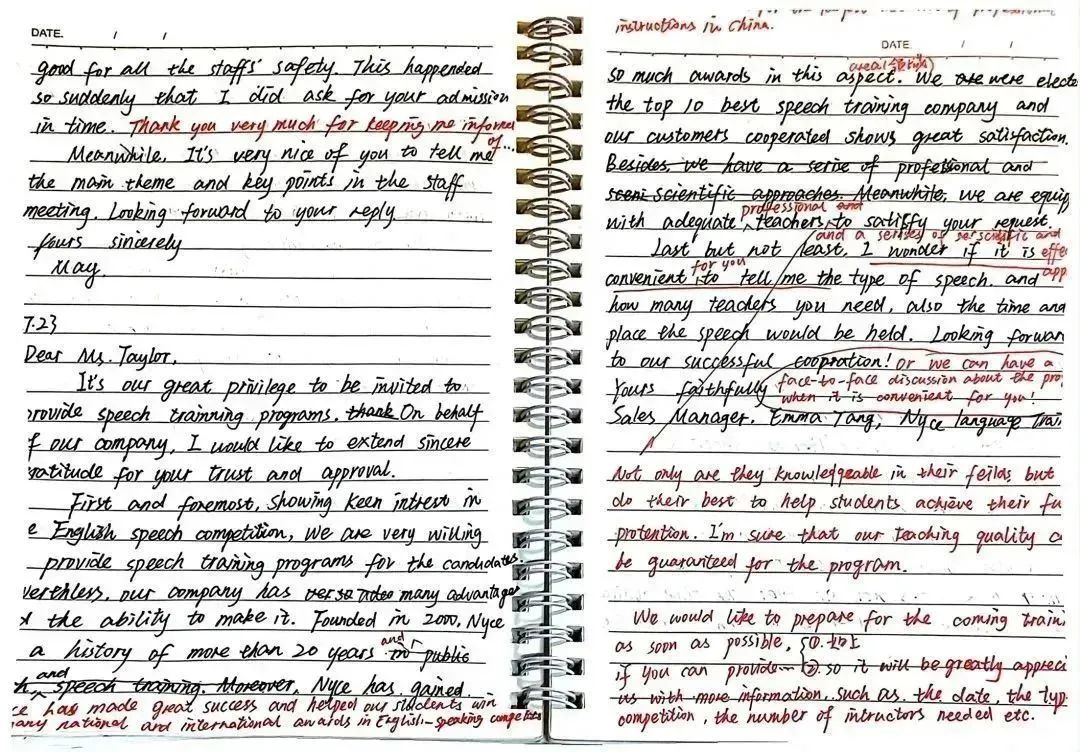 DATE. / /
good for all the staffs' safety. This happended
so suddenly that I did ask for your admission
in time. Thank you very much for keeping me informe
of...
Meanwhile, It's very nice of you to tell me
the main theme and key points in the staff
meeting. Looking forward to your reply
Yours sincerely
May
7.23
Dear Ms. Taylor,
It's our great privilege to be invited to
provide speech trainning programs. thank On behalf
f our company, I would like to extend sincere
ratitude for your trust and approval.
First and foremost, showing keen intrest in
e English speech competition, we are very willing
provide speech training programs for the candidates.
verthless, our company has many advantages
the ability to make it. Founded in 2000, Nyce
a history of more than 20 years and in public
and
speech training. Moreover, Nyce has gained
ce has made great success and helped our students win
many national and international awards in English-speaking competets
instructions in China.
DATE / /
areal
so much awards in this aspect. We are were electe
the top 10 best speech training company and
our customers cooperated shows great satisfaction.
Besides, we have a serise of proffesional and
scientific approaches. Meanwhile, we are equip
professional and
with adequate teachers to satisfy your request.
and a series of scientific and
Last but not least, I wonder if it is effe
for you app
convenient to tell me the type of speech. and
how many teachers you need, also the time and
place the speech would be held. Looking forwar
to our successful coopration! or we can have a
Yours faithfully face-to-face discussion about the pro
when it is convenient for you!
Sales Manager. Emma Tang, Nyce language Trai
Not only are they knowledgeable in their feilds but
do their best to help students achieve their fu
protention. I'm sure that our teaching quality c
be guaranteed for the program.
We would like to prepare for the coming traini
as soon as possible,
if you can provide ② so it will be greatly appreci
us with more information, such as the date, the typ
competition, the number of intructors needed etc.